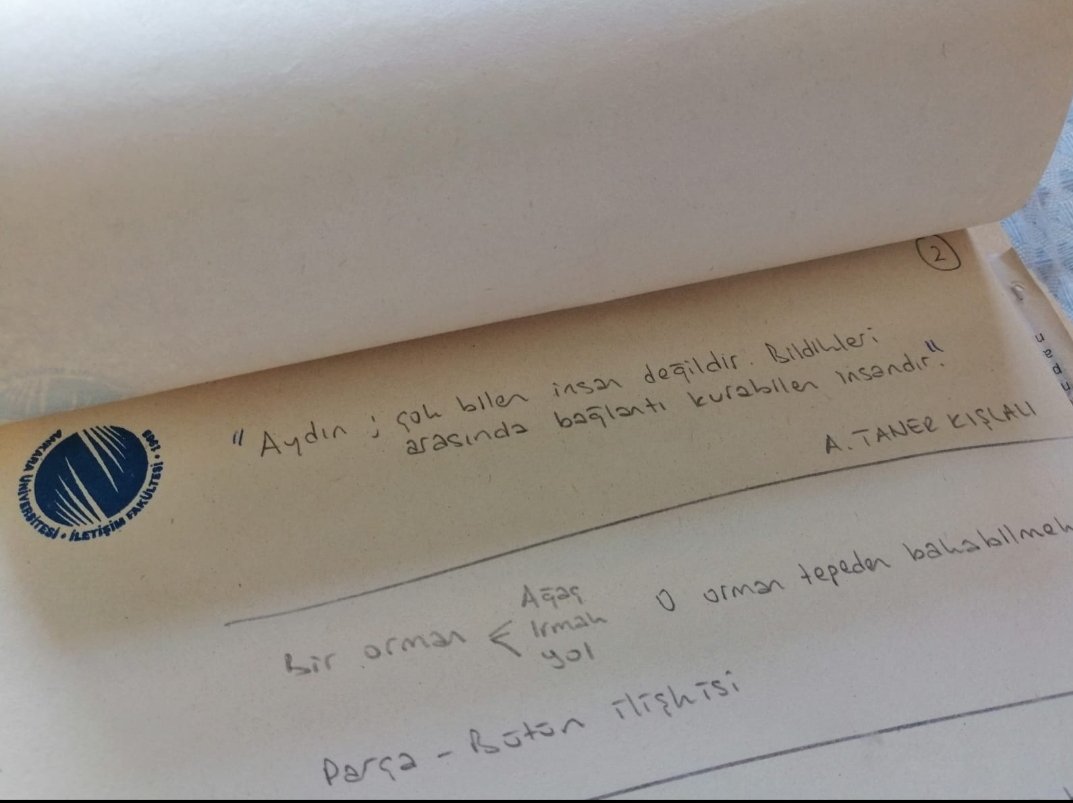 2
"Aydın ; çok bilen insan değildir. Bildikleri
arasında bağlantı kurabilen insandır."
A. TANER KIŞLALI
ANKARA ÜNİVERSİTESİ • İLETİŞİM FAKÜLTESİ • 1965
Bir orman < Ağaç
Irmak
yol
O orman tepeden bakabilmek
Parça - Bütün ilişkisi